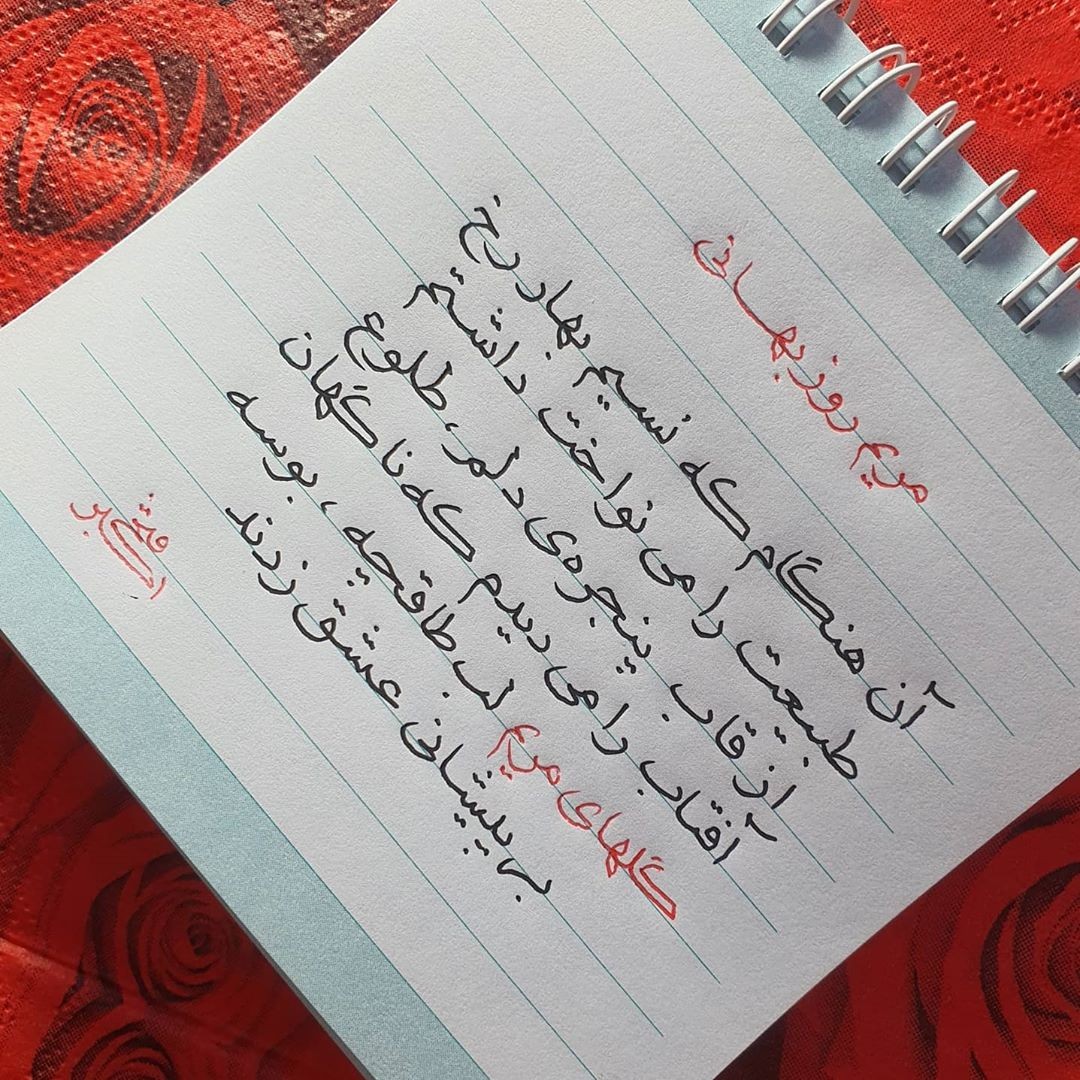 مریم روزبهانی
آن هنگام که نسیم بهار رخ
طبیعت را می نواخت داشتم
از قاب پنجره‌ی دلم، طلوع
آفتاب را می دیدم که ناگهان
گلهای مریم لب طاقچه، بوسه
به پیشانی عشق زدند